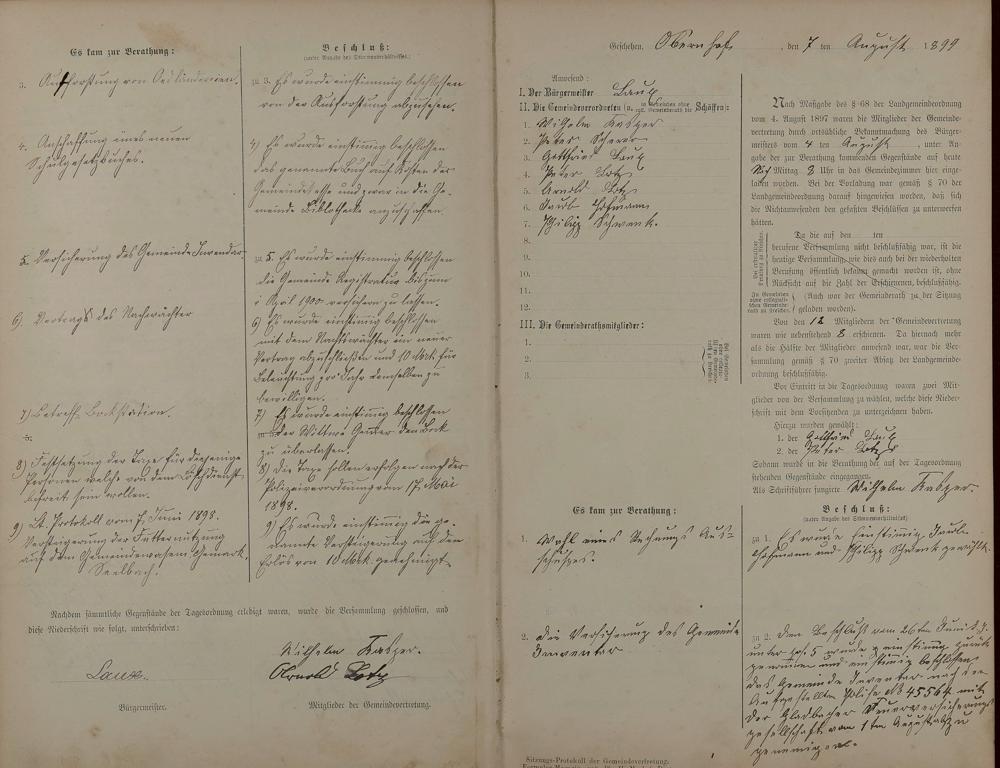 Es kam zur Berathung:
Beschluß:
(unter Angabe des Stimmenverhältnisses).
3. Aufforstung von Oedländereien.
zu 3. Es wurde einstimmig beschlossen
von der Aufforstung abzusehen.
4. Anschaffung eines neuen
Schulgesetzbuches.
4) Es wurde einstimmig beschlossen
das genannte Buch auf Kosten der
Gemeindekasse und zwar in die Ge-
meinde Bibliotheke anzuschaffen.
5. Versicherung des Gemeinde Inventar.
zu 5. Es wurde einstimmig beschlossen
die Gemeinde Registratur bis zum
1 April 1900 versichern zu lassen.
6). Vertrag des Nachtwächter
6) Es wurde einstimmig beschlossen
mit dem Nachtwächter ein neuer
Vertrag abzuschließen und 10 Mrk für
Beleuchtung pro Jahr demselben zu
bewilligen.
7) Betreff. Bockstation.
7) Es wurde einstimmig beschlossen
der Wittwe den Bock
zu überlassen.
8) Festsetzung der Taxe für diejenige
Personen welche von dem Löschdienst
befreit sein wollen.
8) Die Taxe sollen erfolgen nach der
Polizeiverordnung vom 17. Mai
1898.
9) Lt. Protokoll vom 7. Juni 1898.
Versteigerung der Futternutzung
auf dem Gemeindewasen Gemark.
Seelbach.
9) Es wurde einstimmig die ge-
nannte Versteigerung auf den
Erlös von 10 Mrk. genehmigt
Nachdem sämmtliche Gegenstände der Tagesordnung erledigt waren, wurde die Versammlung geschlossen, und
diese Niederschrift wie folgt, unterschrieben:
Wilhelm Kasper.
Laux.
Arnold Lotz
Bürgermeister.
Mitglieder der Gemeindevertretung.
Geschehen, Obernhof, den 7 ten August 1899
Anwesend:
I. Der Bürgermeister Laux
II. Die Gemeindeverordneten (u. in Gemeinden ohne Gemeinderath die Schöffen):
1. Wilhelm Kasper
2. Peter Scherer
3. Gotthard Laux
4. Peter Lotz
5. Arnold Lotz
6. Jacob Hofmann
7. Philipp Schwenk.
8.
9.
10.
11.
12.
III. Die Gemeinderathsmitglieder:
1.
2.
3.
Nach Maßgabe des § 68 der Landgemeindeordnung
vom 4. August 1897 waren die Mitglieder der Gemeinde-
vertretung durch ortsübliche Bekanntmachung des Bürger-
meisters vom 4 ten August, unter An-
gabe der zur Berathung kommenden Gegenstände auf heute
Mittag 8 Uhr in das Gemeindezimmer hier einge-
laden worden. Bei der Vorladung war gemäß § 70 der
Landgemeindeordnung darauf hingewiesen worden, daß sich
die Nichtanwesenden den gefaßten Beschlüssen zu unterwerfen
hätten.
Da die auf den ten
berufene Versammlung nicht beschlußfähig war, ist die
heutige Versammlung, wie dies auch bei der wiederholten
Berufung öffentlich bekannt gemacht worden ist, ohne
Rücksicht auf die Zahl der Erschienenen, beschlußfähig.
(Auch war der Gemeinderath zu der Sitzung
geladen worden).
Von den 12 Mitgliedern der Gemeindevertretung
waren wie nebenstehend 8 erschienen. Da hiernach mehr
als die Hälfte der Mitglieder anwesend war, war die Ver-
sammlung gemäß § 70 zweiter Absatz der Landgemeinde-
ordnung beschlußfähig.
Vor Eintritt in die Tagesordnung waren zwei Mit-
glieder von der Versammlung zu wählen, welche diese Nieder-
schrift mit dem Vorsitzenden zu unterzeichnen haben.
Hierzu wurden gewählt:
1. der Gotthard Laux
2. der Peter Lotz
Sodann wurde in die Berathung der auf der Tagesordnung
stehenden Gegenstände eingegangen.
Als Schriftführer fungirte Wilhelm Kasper.
Es kam zur Berathung:
Beschluß:
(unter Angabe des Stimmenverhältnisses)
1. Wahl eines Rechnungs Aus-
schusses.
zu 1. Es wurde Einstimmig Jacob
Hofmann und Philipp Schwenk gewählt.
2. Die Versicherung des Gemeinde
Inventar
zu 2. Den Beschluß vom 26ten Juni d. J.
unter pos. 5 wurde einstimmig zurück
genommen und einstimmig beschlossen
das Gemeinde Inventar nach der
Police No 45564 mit
der Gladbacher Feuerversicherungs
gesellschaft vom 1ten August ab zu
genemigen.
Sitzungs-Protokoll der Gemeindevertretung.